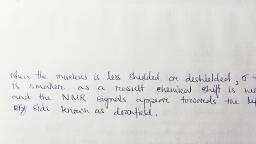 when the nucleus is less shielded or deshielded, σ
is smaller as a result chemical shift is
and the NMR signals appear towards the
side known as downfield.